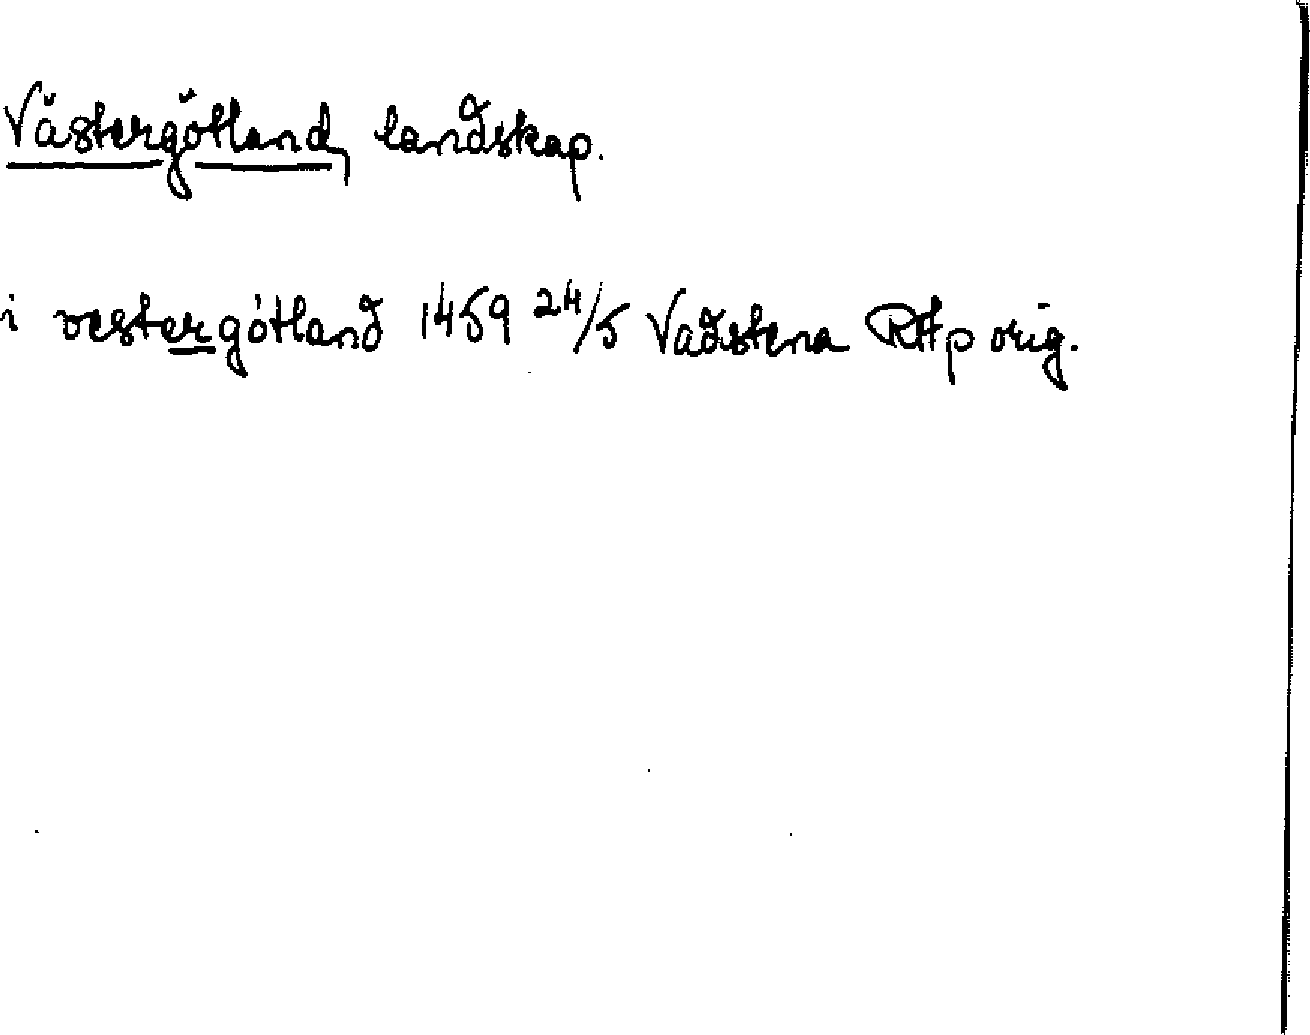 Västergötland, landskap.
i vestergötland 1459 24/5 Vadstena RAp orig.